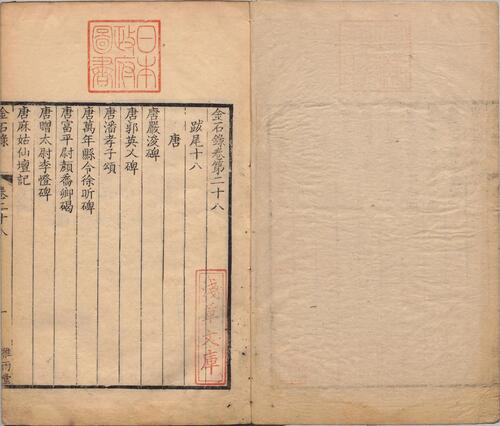 日本
政府
圖書
金石錄卷第二十八
跋尾十八
唐
唐嚴浚碑
唐郭英乂碑
唐潘孝子頌
唐萬年縣令徐昕碑
唐富平尉顏喬卿碣
唐贈太尉李憕碑
唐麻姑仙壇記
金石錄 卷二十八 一 雅雨堂
淺草文庫